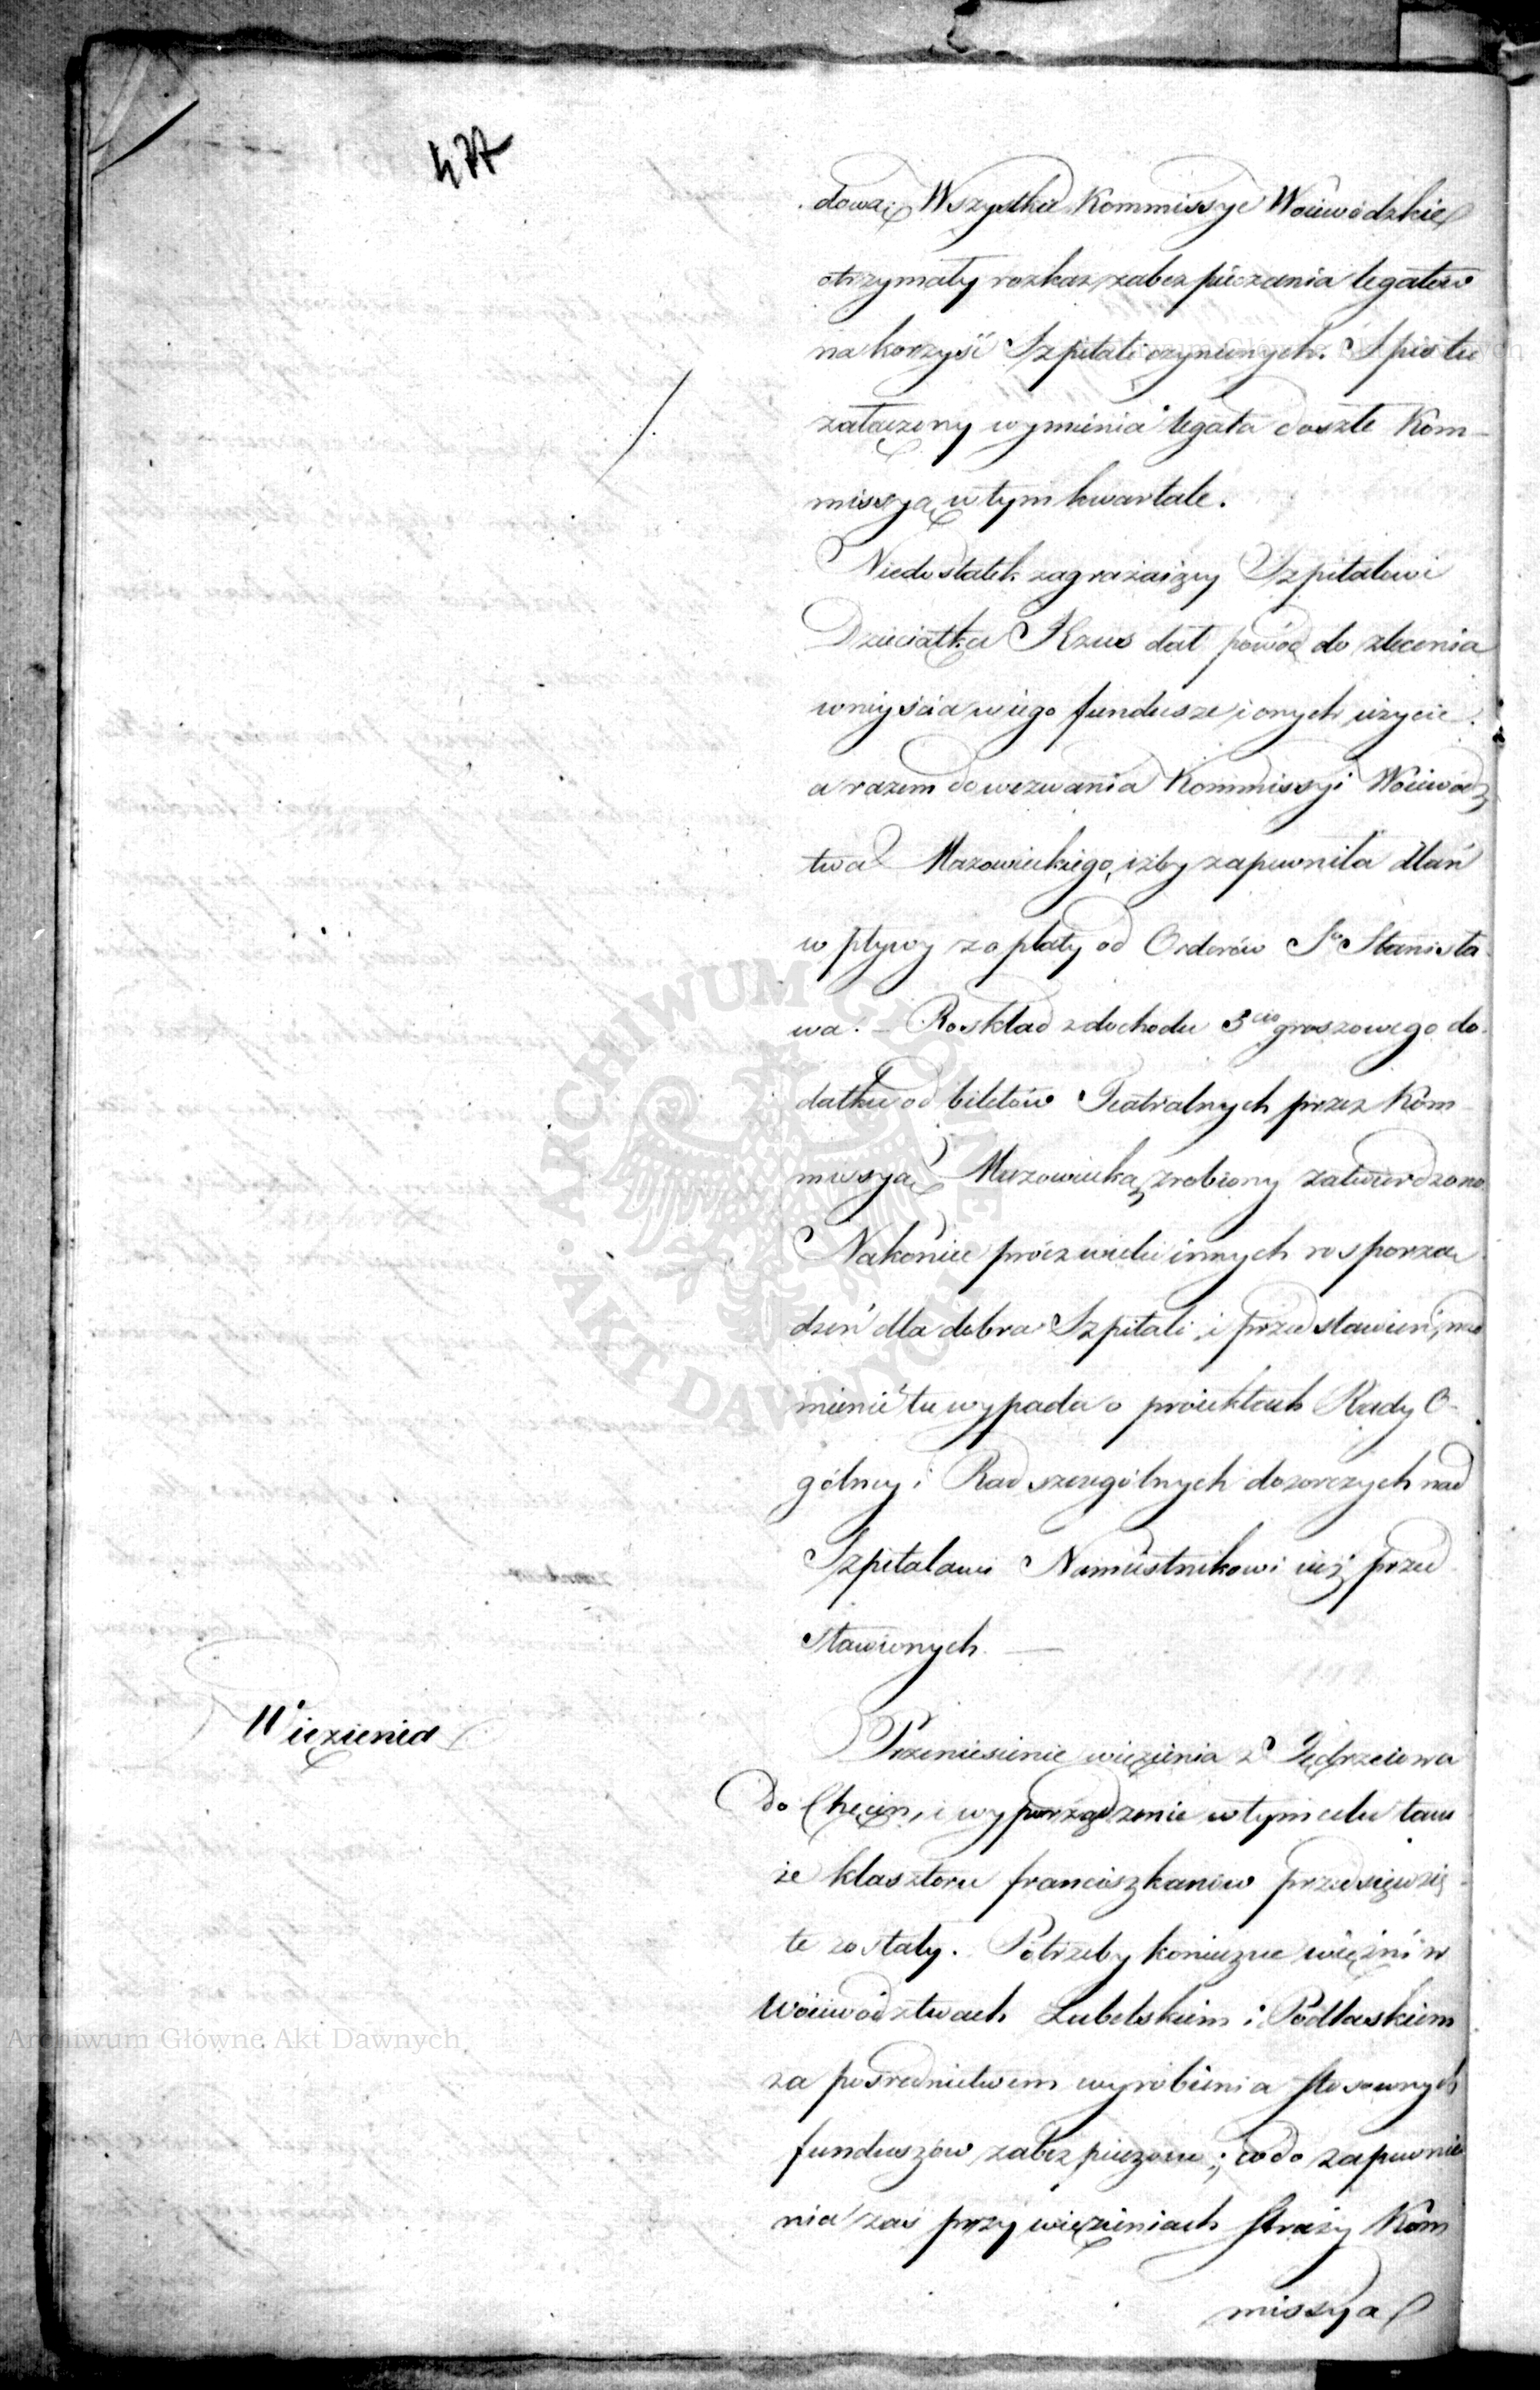 477
dową. Wszystkie Kommissye Woiewódzkie
otrzymały rozkaz zabezpieczania legatów
na korzyść Szpitali czynionych. Spis tu
załączony wymienia legata doszłe Kom-
missyą w tym kwartale.
Niedostatek zagrażaiący Szpitalowi
Dzieciątka Jezus dał powód do zlecenia
wniyścia w iego fundusze i onych użycie
a razem do wezwania Kommissyi Woiewódz
twa Mazowieckiego, iżby zapewniła dlań
wpływy z opłaty od Orderów Sgo Stanisła
wa. – Rozkład z dochodu 3cio groszowego do-
datku od biletów Teatralnych przez Kom-
missyą Mazowiecką zrobiony zatwierdzono.
Nakoniec prócz wielu innych rosporzą
dzeń dla dobra Szpitali i przedstawień, nad
mienić tu wypada o proiektach Rady O-
gólney i Rad szczególnych dozorczych nad
Szpitalami Namiestnikowi iuż przed
stawionych. —
Więzienia
Przeniesienie więzienia z Jędrzeiowa
do Chęcin, i wyporządzenie w tym celu tam
że klasztoru franciszkanów przedsięwzię
te zostały. Potrzeby konieczne więźni w
Woiewództwach Lubelskiem i Podlaskiem
za pośrednictwem wyrobienia stosownych
funduszów zabezpieczone; co do zapewnie
nia zaś przy więzieniach straży Kom
missya
Archiwum Główne Akt Dawnych
ARCHIWUM GŁÓWNE AKT DAWNYCH